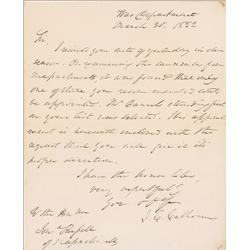 War Department
March 30. 1822
Sir,
I received your note of yesterday in due
season. On examining the
Massachusetts it was found that only
one of those you recommended could
be appointed. Mr. standing first
on your list was selected. His appoint
ment is herewith enclosed with the
request that you will give it its
proper direction.
I have the honor to be,
very respectfully
your
J. C. Calhoun
To the Hon.
John
of Massachusetts